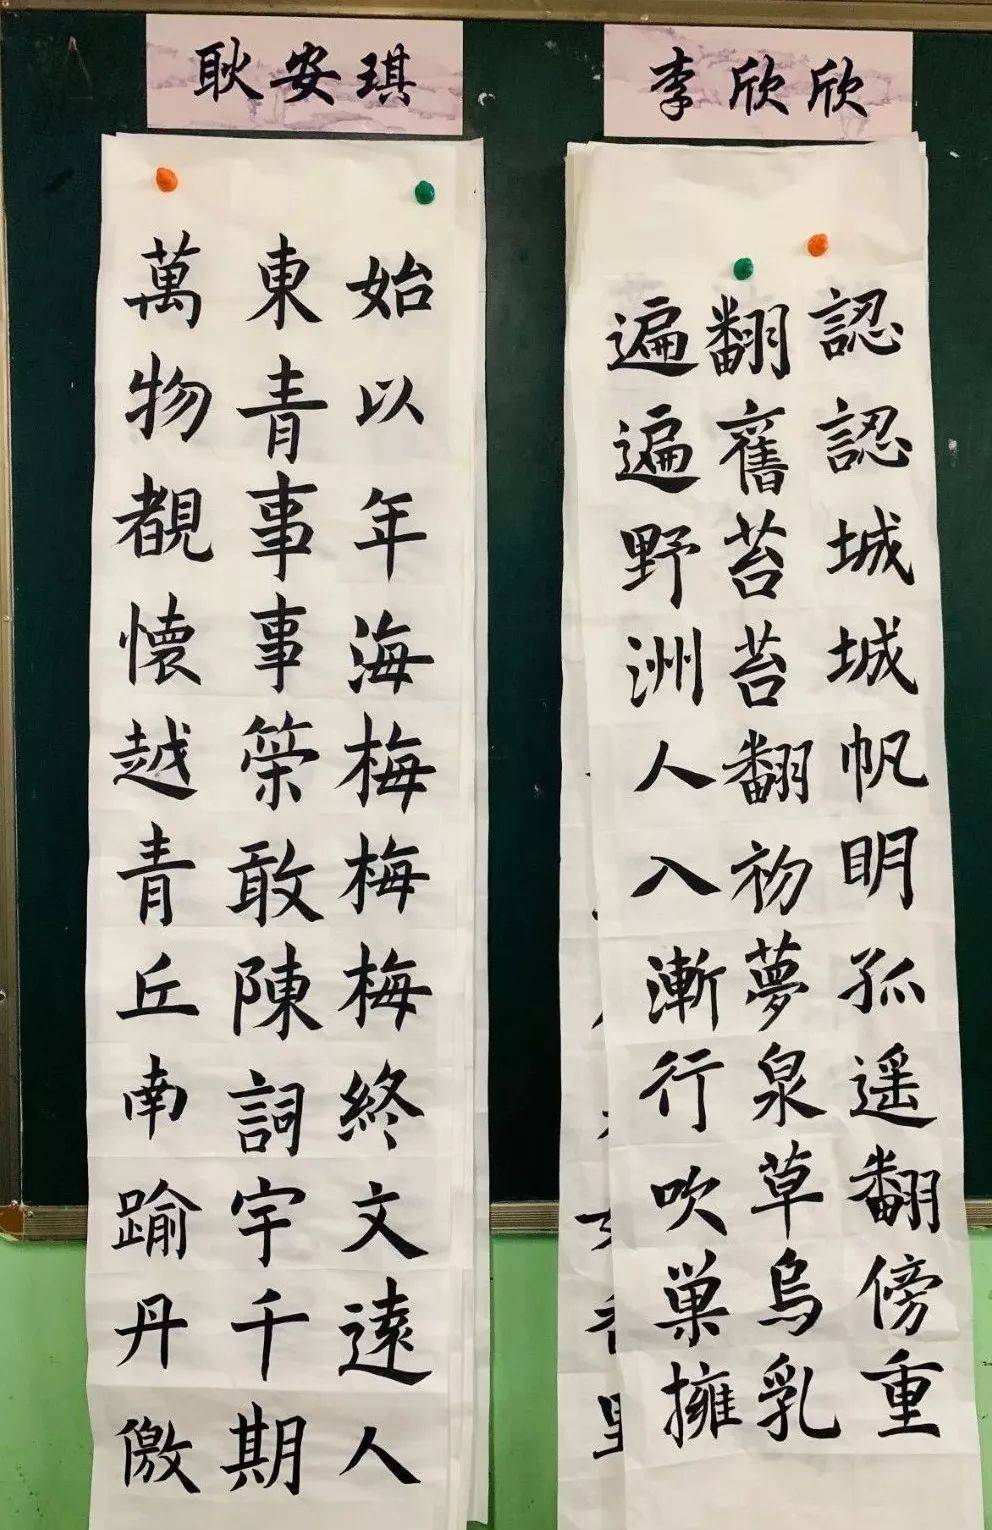 耿安琪
始以年海梅梅梅終文遠人
東青事事榮敢陳詞宇千期
萬物覩懷越青丘南踰丹儌
李欣欣
認認城城帆明孤遥翻傍重
翻舊苔苔翻初夢泉草烏乳
遍遍野洲人入漸行吹巢擁